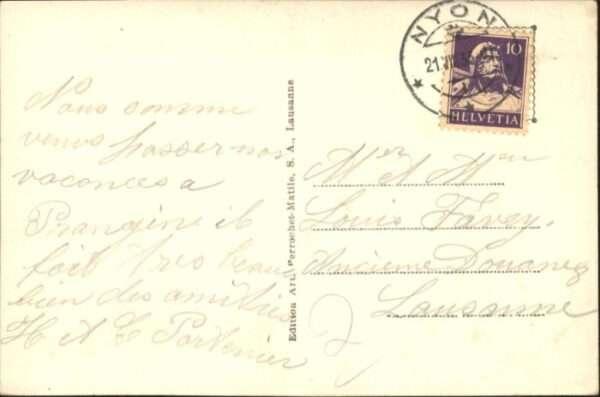 Nous somme
venus passer nos
vacances a
Prangine il
fait tres beau
bien des amitiés
H et E
Edition Art. Perrochet-Matile, S. A., Lausanne
NYON
21.VII
10
HELVETIA
Mr et Mm
Louis Favey,
Ancienne Douane
Lausanne